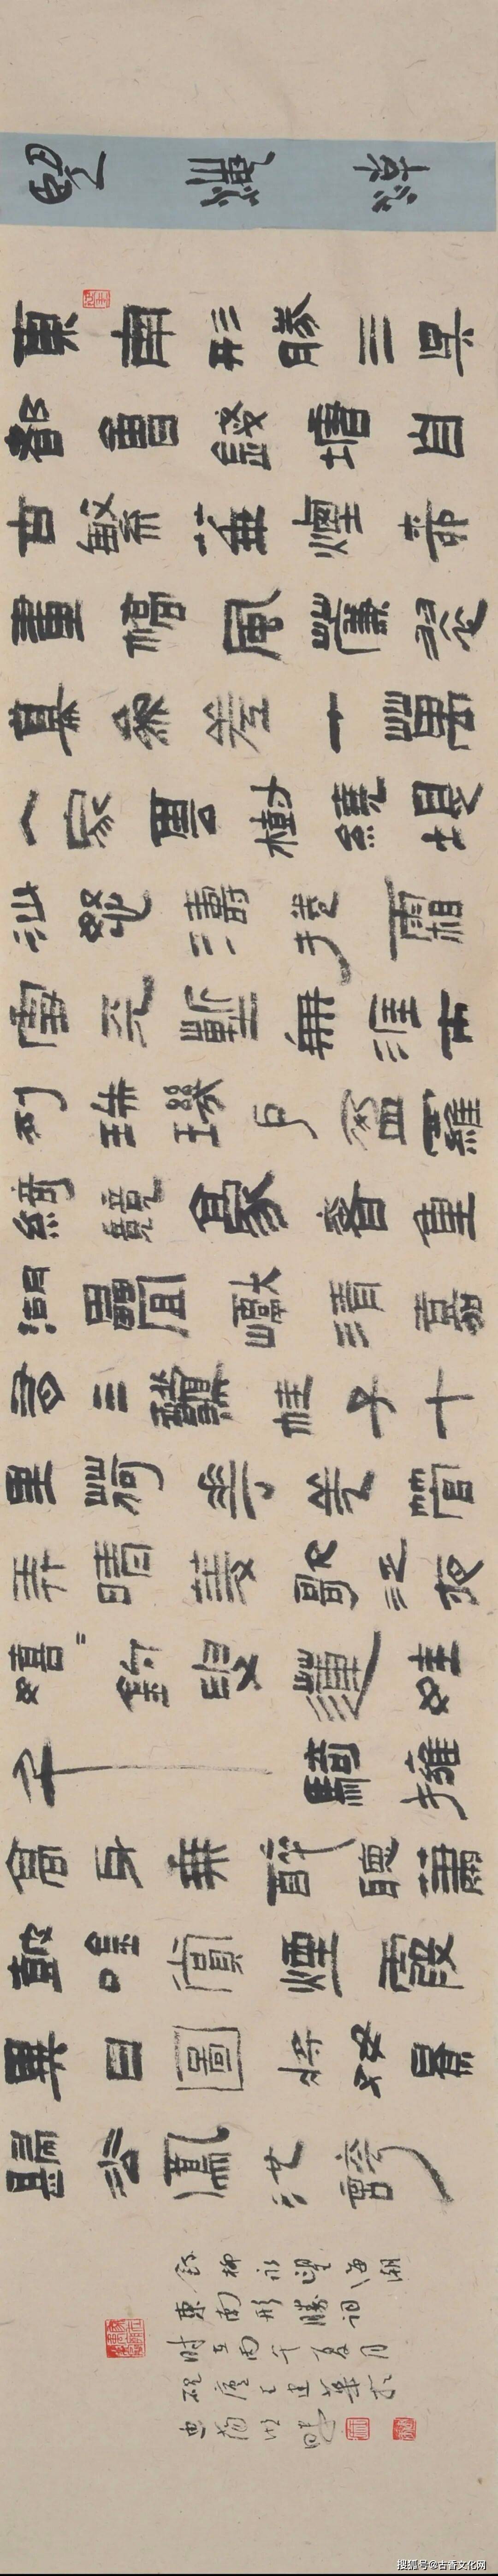 望海潮
東南形勝三吳
都會錢塘自
古繁華煙柳
畫橋風簾翠
幕參差十萬
人家雲樹繞堤
沙怒濤捲霜
雪天塹無涯市
列珠璣戶盈羅
綺競豪奢重
湖疊巘清嘉
有三秋桂子十
里荷花羌管
弄晴菱歌泛夜
嬉〃釣叟蓮娃
千騎擁
高牙乘醉聽蕭
鼓吟賞煙霞
異日圖將好景
歸去鳳池誇
錄柳永望海潮
東南形勝詞
时在丙午夏月
王建華於
搜狐号@古香文化网